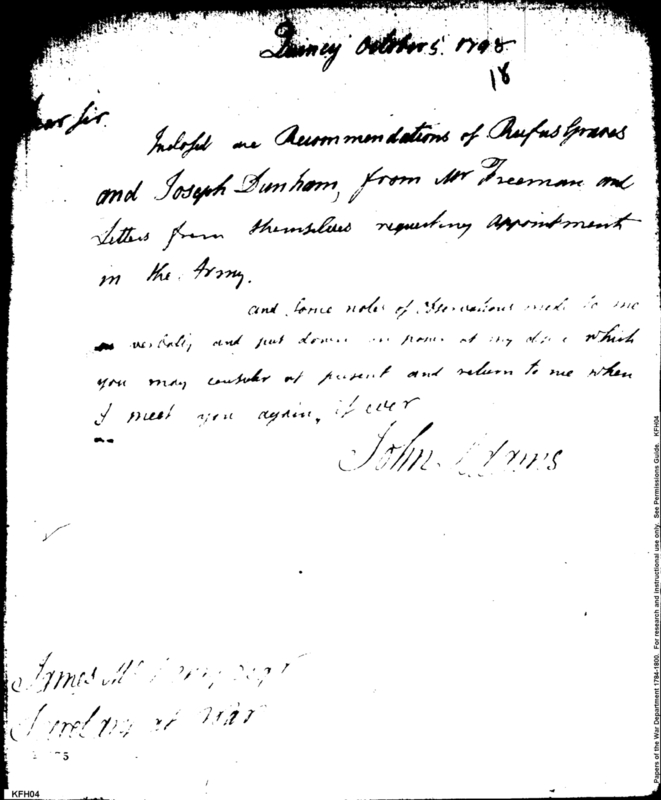 Quincy October 5. 1798
18
Dear Sir.
Inclosed are Recommendations of Rufus Graves
and Joseph Dunham, from Mr Freeman and
Letters from themselves requesting appointment
in the Army.
and some notes of observations made to me
verbally and put down on at my which
you may consider at present and return to me when
I meet you again, if ever
John Adams
James Mc
Secretary at War
KFH04
Papers of the War Department 1784-1800. For research and instructional use only. See Permissions Guide. KFH04